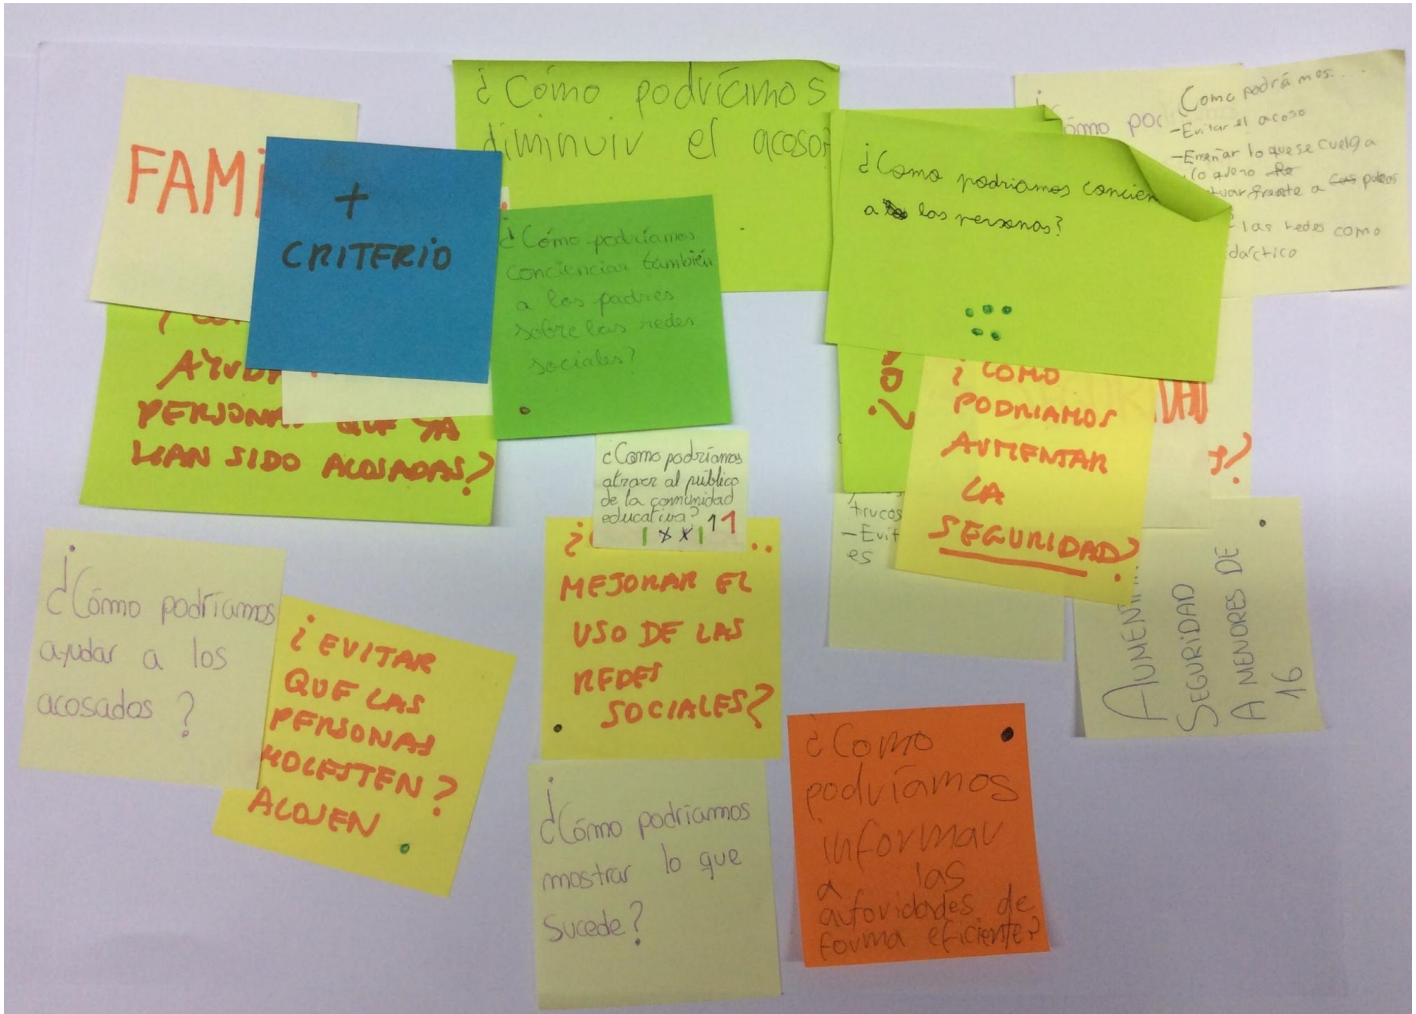 FAMI
+
CRITERIO
¿Cómo podríamos
diminuir el acoso?
¿Cómo podríamos
conscienciar también
a los padres
sobre las redes
sociales?
¿Como podriamos concien
a las personas?
ómo pod
Como podrá mos...
-Evitar el acoso
-Enseñar lo que se cuelga
frente a
las redes como
dáctico
AYUDA
PERSONA QUE YA
HAN SIDO ACOSADAS?
¿Como podríamos
atraer al público
de la comunidad
educativa?
¿COMO
PODRIAMOS
AUMENTAR
LA
SEGURIDAD?
trucos
-Evit
es
AUMENTA
SEGURIDAD
A MENORES DE
16
¿Cómo podríamos
ayudar a los
acosados?
¿EVITAR
QUE LAS
PERSONAS
MOLESTEN?
ACOSEN
MEJORAR EL
USO DE LAS
REDES
SOCIALES?
¿Cómo podríamos
mostrar lo que
sucede?
¿Como
podríamos
informar
a las
autoridades de
forma eficiente?